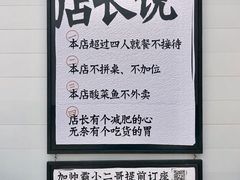 店长说
一 本店超过四人就餐不接待
二 本店不拼桌、不加位
三 本店酸菜鱼不外卖
四 店长有个减肥的心
无奈有个吃货的胃
加帅霸小二哥提前订座